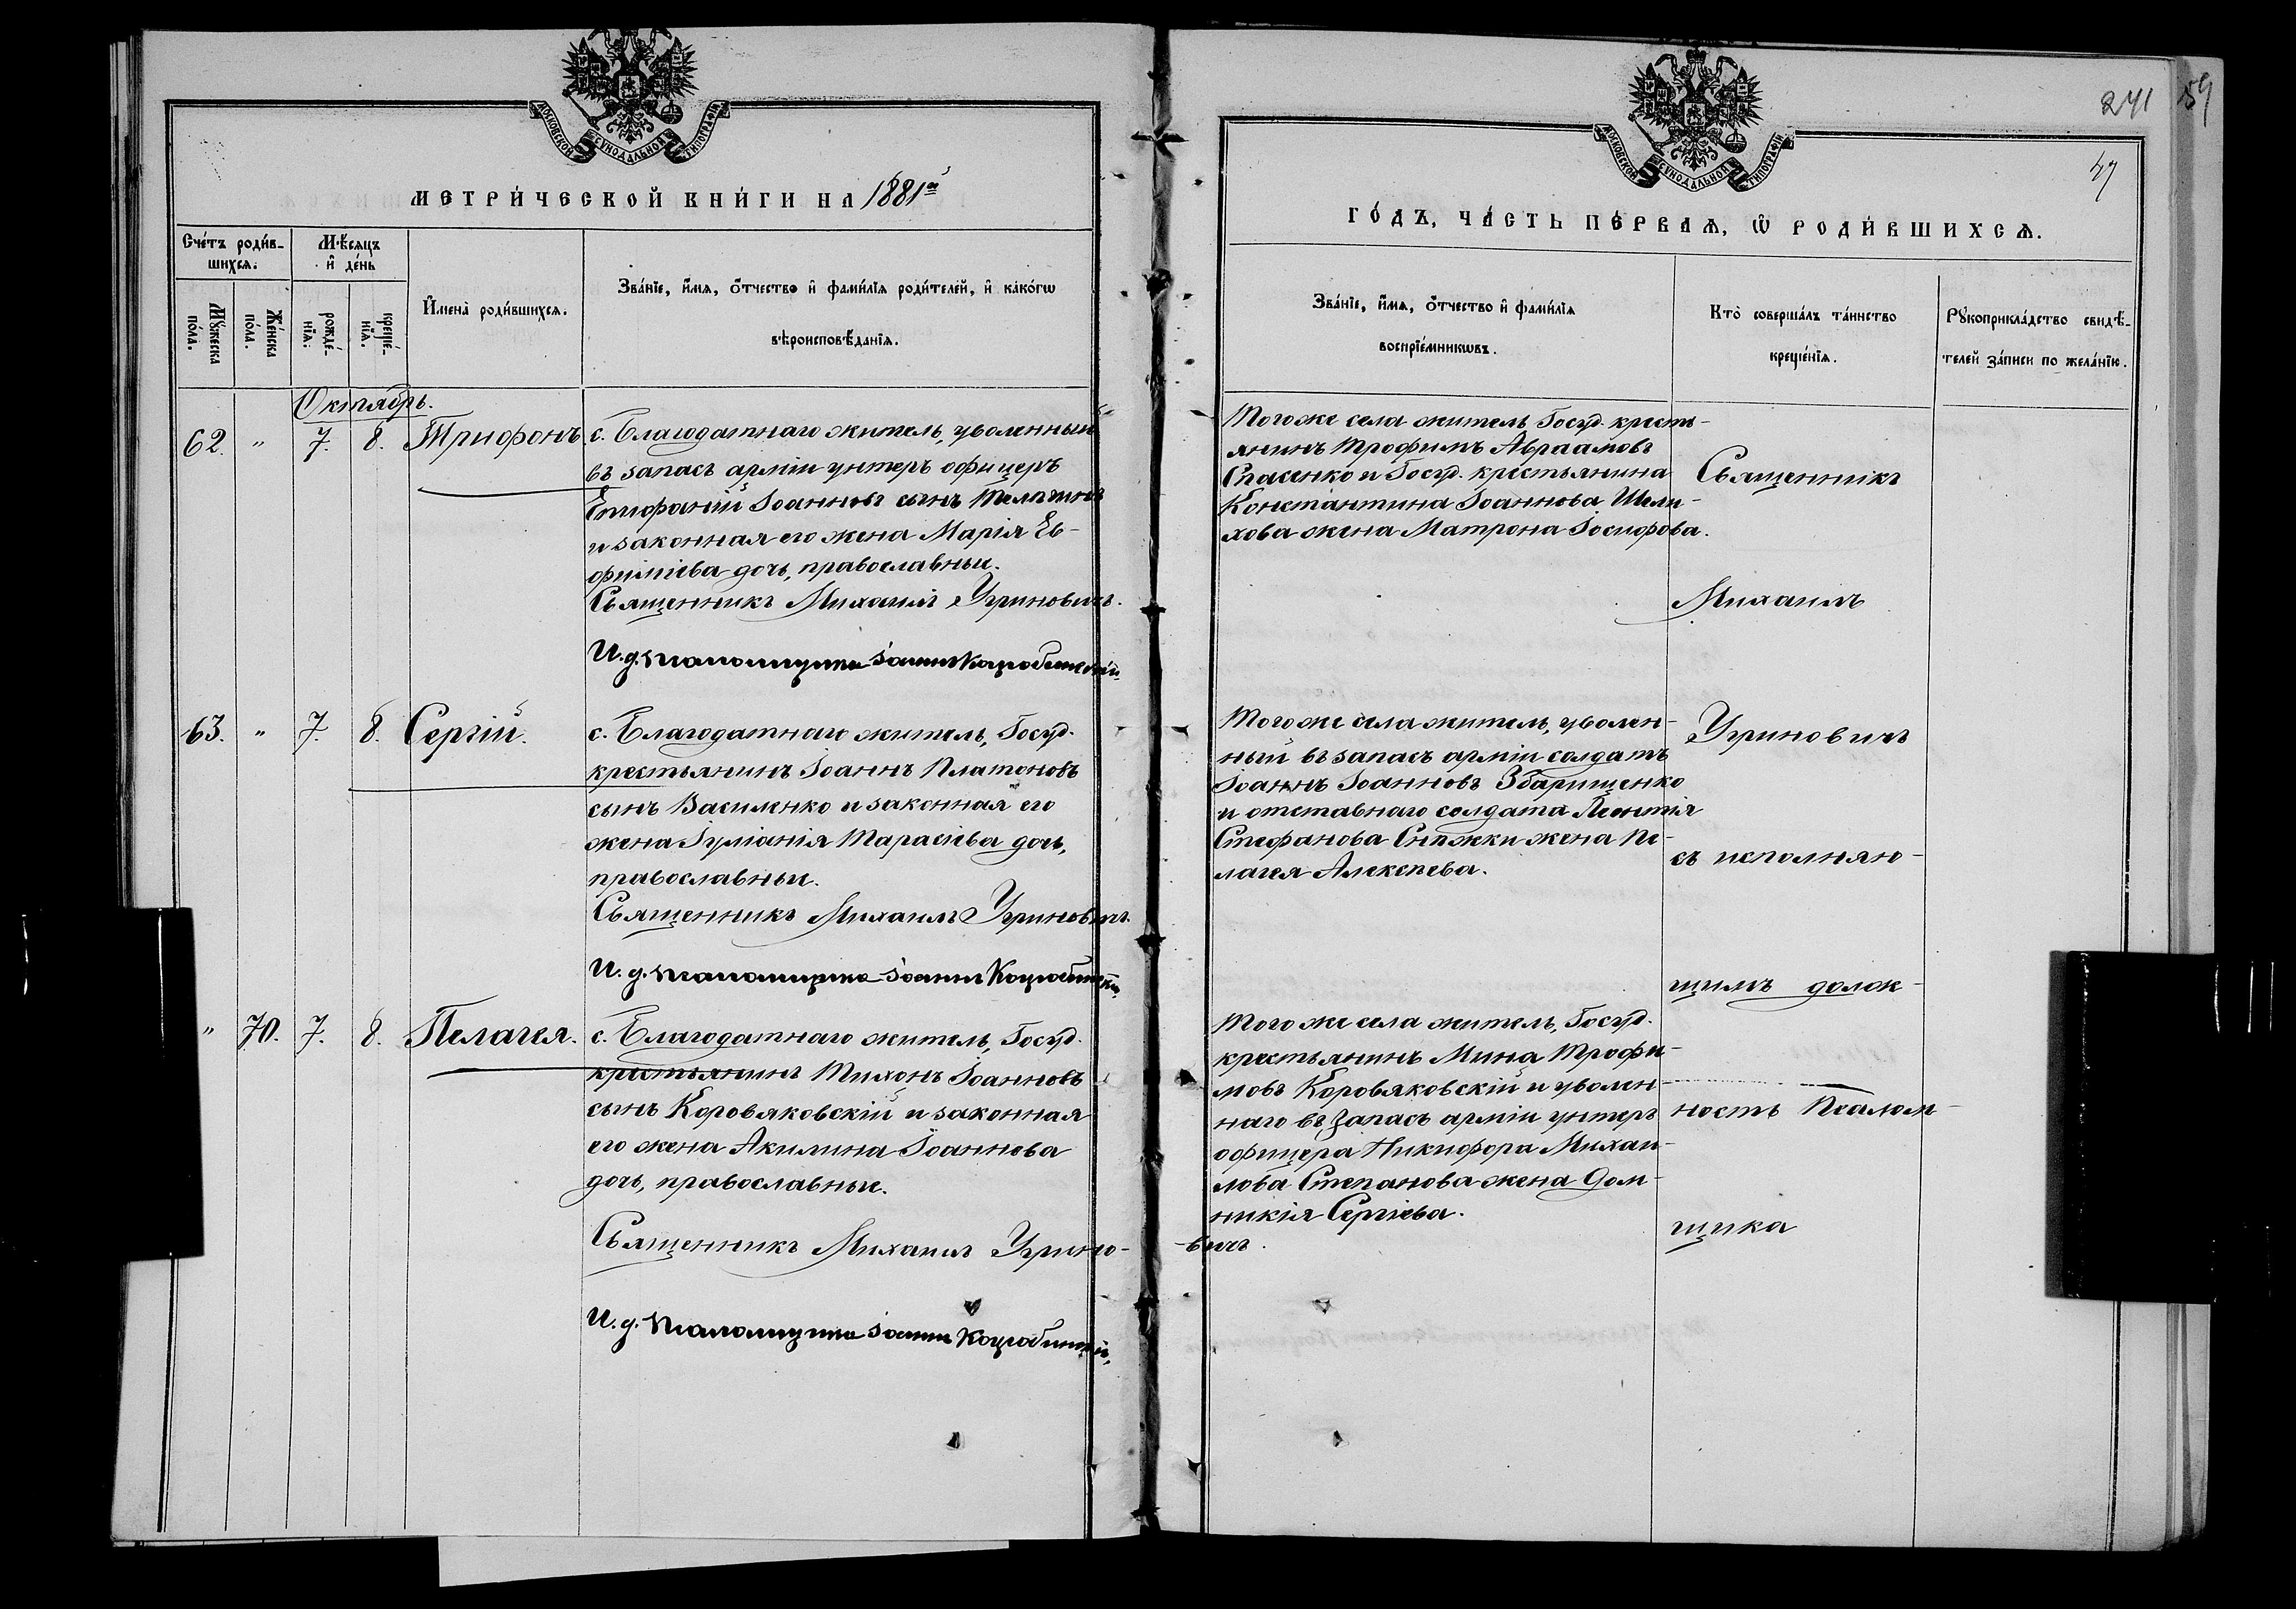 МОСКОВСКОЙ СУНОДАЛЬНОЙ ТИПОГРАФІИ
МЕТРИ́ЧЕСКОЙ КНИ́ГИ НА 1881й
Сче́тъ роди́в-
шихсѧ.
Мѣ́сяцъ
и де́нь
Мꙋ́жеска
по́ла.
Же́нска
по́ла.
рожде́-
нїѧ.
креще́-
нїѧ.
Имена̀ роди́вшихсѧ.
Зва́нїе, и҆́мѧ, ѻ҆́тчество и҆ фами́лїѧ роди́телей, и҆ како́гѡ
вѣроисповѣ́данїѧ.
Октябрь.
62. " 7. 8. Трифонъ
с. Благодатнаго житель, уволенный
въ запасъ арміи унтеръ офицеръ
Епифаній Іоанновъ сынъ
и законная его жена Марія Ев-
фиміева дочь, православные.
Священникъ Михаилъ Угриновичъ.
И. д. псаломщика Іоаннъ Коцюбинскій.
63. " 7. 8. Сергій.
с. Благодатнаго житель, Госуд.
крестьянинъ Іоаннъ Платоновъ
сынъ Василенко и законная его
жена Іуліанія Тарасіева дочь,
православные.
Священникъ Михаилъ Угриновичъ.
И. д. псаломщика Іоаннъ Коцюбинскій.
" 70. 7. 8. Пелагея.
с. Благодатнаго житель, Госуд.
крестьянинъ Тихонъ Іоанновъ
сынъ Коровяковскій и законная
его жена Акилина Іоаннова
дочь, православные.
Священникъ Михаилъ Угрино-
-вичъ.
И. д. псаломщика Іоаннъ Коцюбинскій.
241 59
47
МОСКОВСКОЙ СУНОДАЛЬНОЙ ТИПОГРАФІИ
ГО́ДЪ, ЧА́СТЬ ПЕ́РВАѦ, Ѡ҆ РОДИ́ВШИХСѦ.
Зва́нїе, и҆́мѧ, ѻ҆́тчество и҆ фами́лїѧ
воспрїе́мникѡвъ.
Кто̀ соверша́лъ та́инство
креще́нїѧ.
Рꙋкоприкла́дство свидѣ́-
телей за́писи по жела́нїю.
Того же села житель Госуд. кресть-
янинъ Трофимъ Авраамовъ
Спасенко и Госуд. крестьянина
Константина Іоаннова Шели-
хова жена Матрона Іосифова.
Того же села житель, уволен-
ный въ запасъ арміи солдатъ
Іоаннъ Іоанновъ Збарищенко
и отставнаго солдата Леонтія
Стефанова Снѣжки жена Пе-
лагея Алексѣева.
Того же села житель, Госуд.
крестьянинъ Мина Трофи-
мовъ Коровяковскій и уволен-
наго въ запасъ арміи унтеръ
офицера Никифора Михаи-
лова Степанова жена Дом-
никія Сергіева.
Священникъ
Михаилъ
Угриновичъ
съ исполняю-
щимъ долж-
ность Псалом-
щика